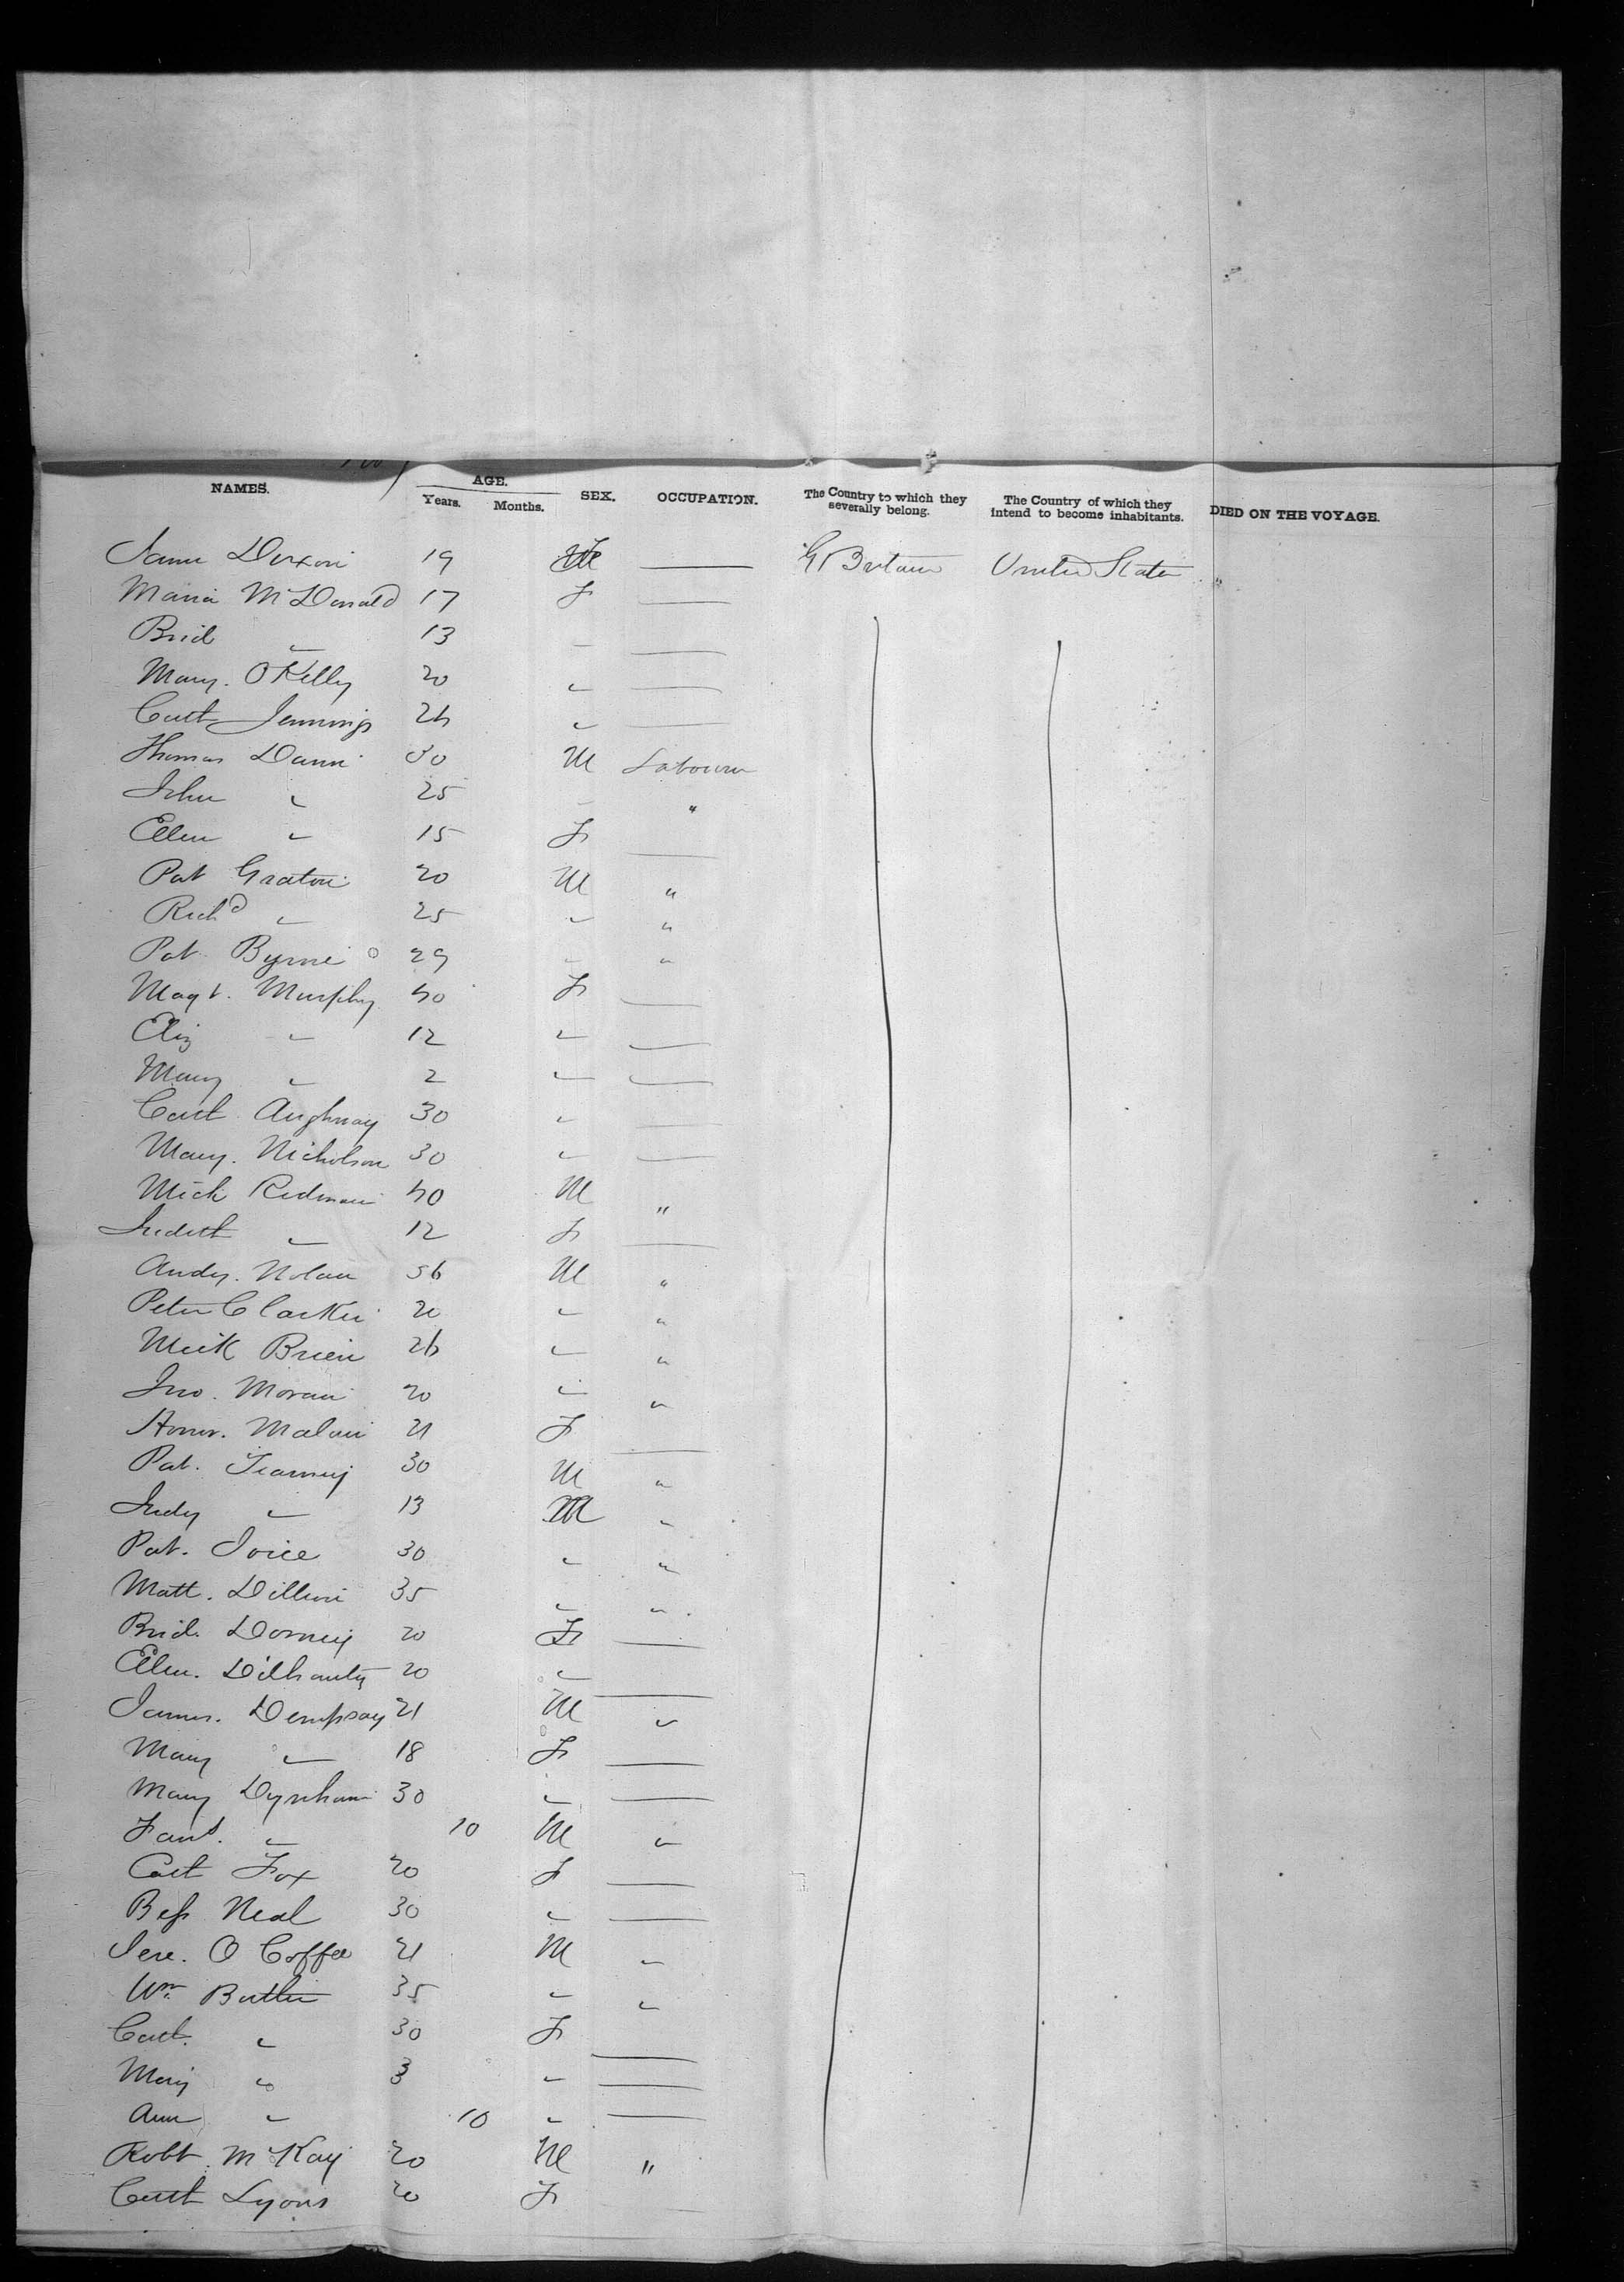 NAMES. AGE. SEX. OCCUPATION. The Country to which they severally belong. The Country of which they intend to become inhabitants. DIED ON THE VOYAGE.
Years. Months.
Dixon 19 F —— Gt Britain United States "
Maria McDonald 17 F ——
Brid " 13 " ——
Mary. O Kelly 20 " ——
Cath Jennings 26 " ——
Thomas Dunn 30 M Labourer
John " 25 " "
Ellen " 15 F ——
Pat Graton 20 M "
Richd " 25 " "
Pat Byrne 29 " "
Magt. Murphy 40 F ——
Eliz " 12 " ——
Mary " 2 " ——
Cath Aughnay 30 " ——
Mary. Nicholson 30 " ——
Mick Redman 40 M "
Judith " 12 F ——
Andy. Nolan 56 M "
Peter Clarke 20 " "
Mick Brien 26 " "
Jno. Moran 20 " "
Honor. Malone 21 F ——
Pat. 30 M "
Judy " 13 "
Pat. Joice 30 " "
Matt. Dillon 35 " "
Brid. 20 F ——
Ellen. 20 " ——
James. Dempsay 21 M "
Mary " 18 F ——
Mary Dynham 30 " ——
" 10 M "
Cath Fox 20 F ——
Bess Neal 30 " ——
Jere. O Coffee 21 M "
Wm. Butler 35 " "
Cath. " 30 F ——
Mary " 3 " ——
Ann " 10 " ——
Robt. McKay 20 M "
Cath Lyons 20 F ——